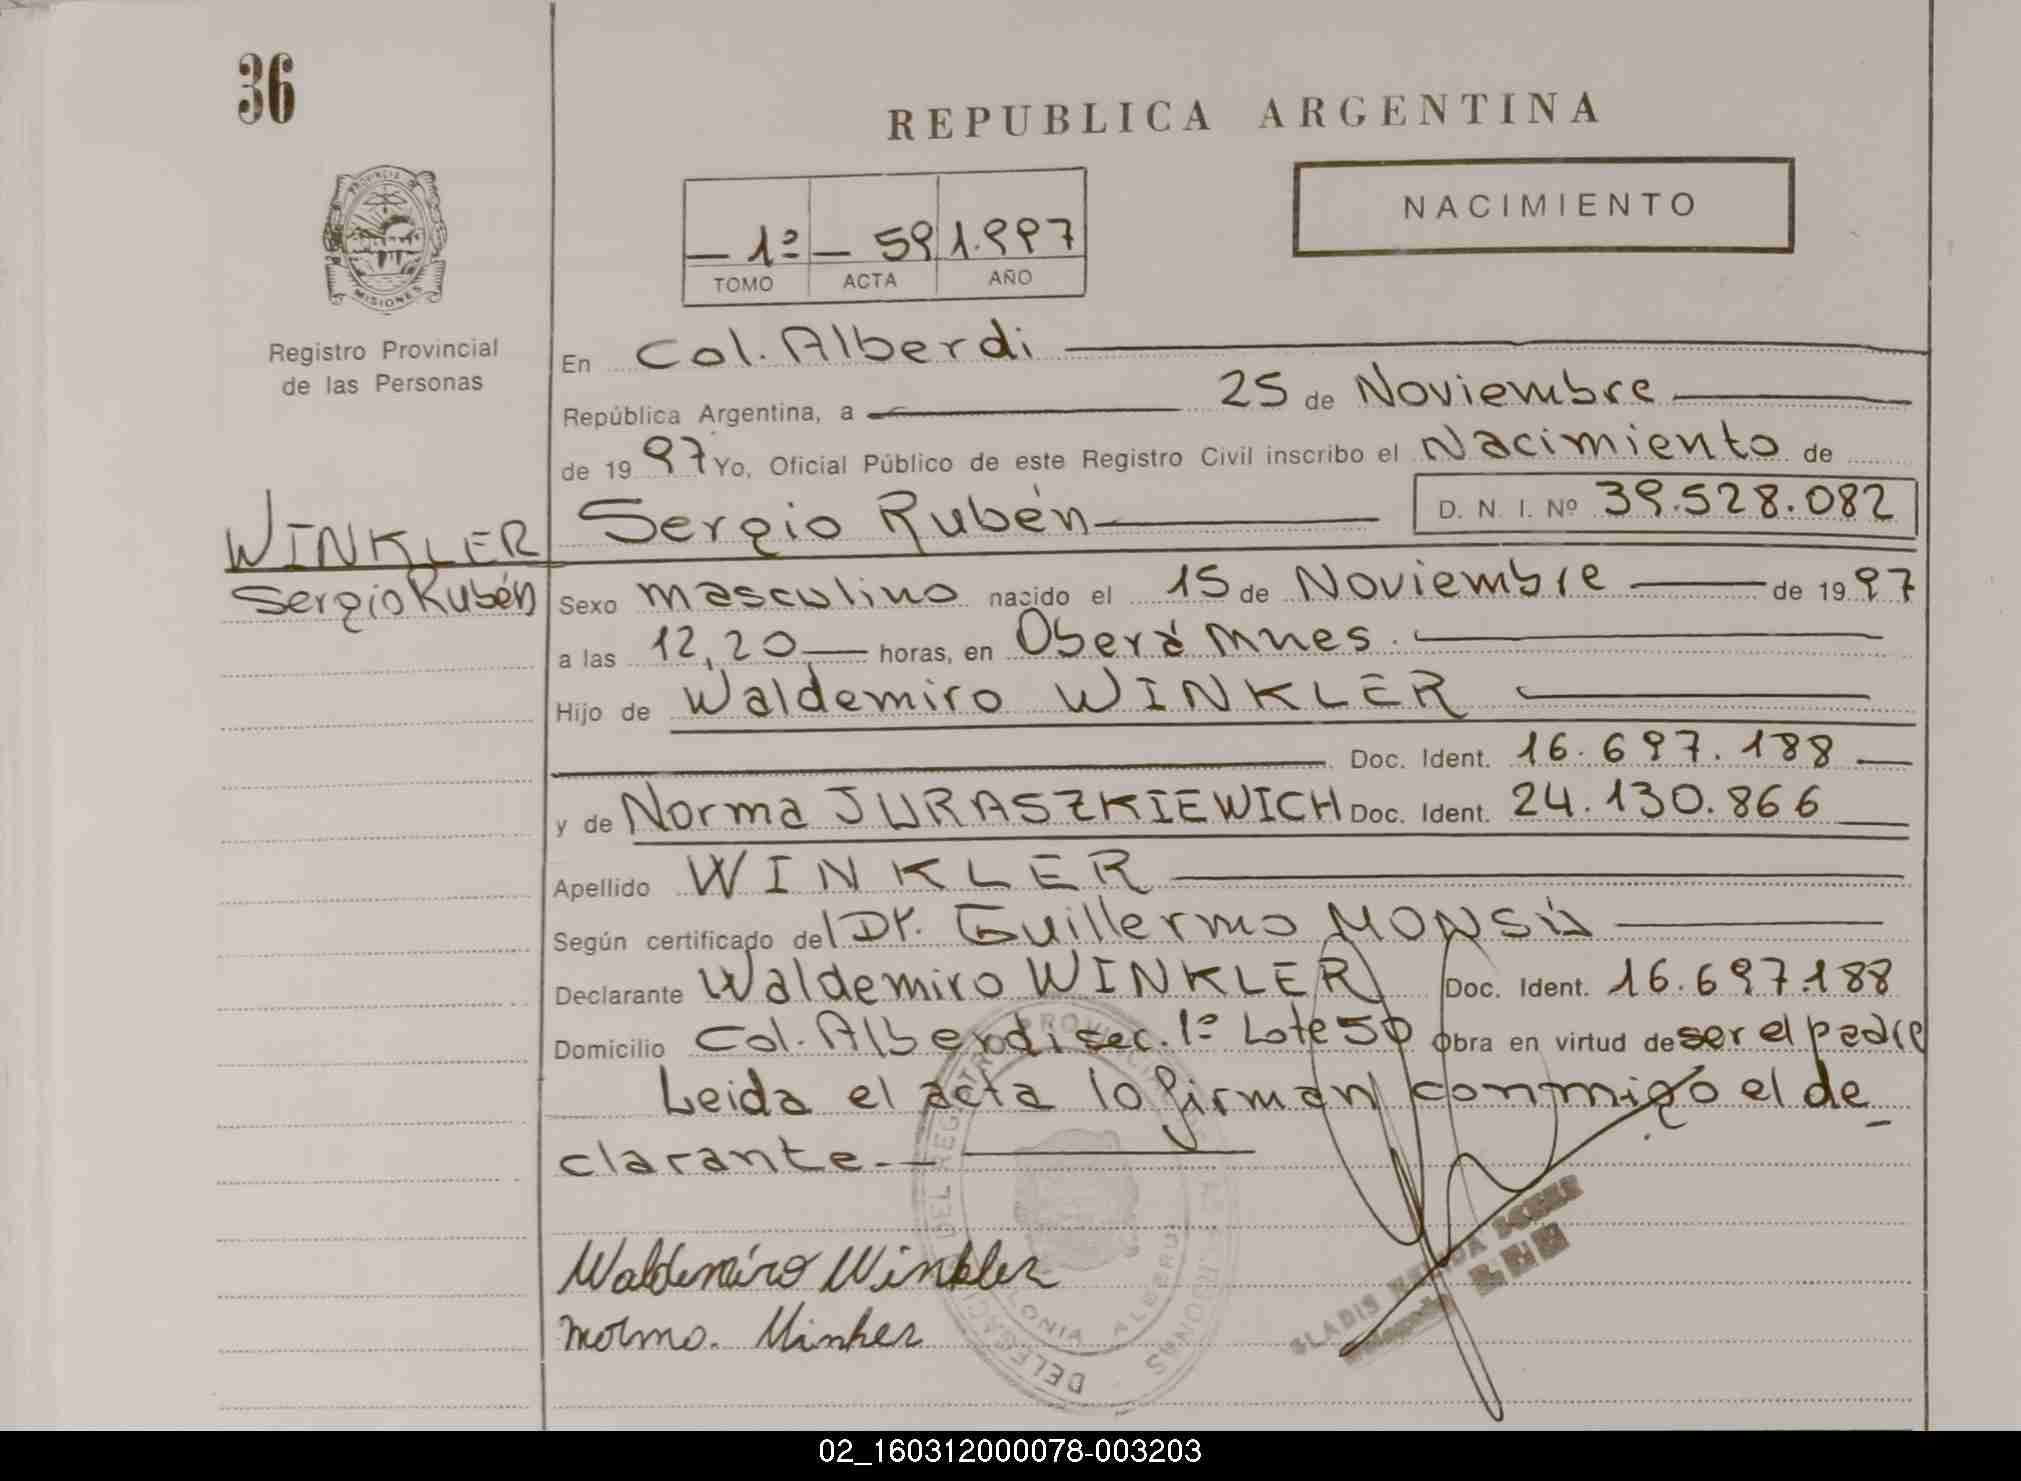 36
REPUBLICA ARGENTINA
PROVINCIA DE
MISIONES
NACIMIENTO
— 1º — 59 1.997
TOMO ACTA AÑO
Registro Provincial
de las Personas
En Col. Alberdi
República Argentina, a 25 de Noviembre
de 1997 Yo, Oficial Público de este Registro Civil inscribo el Nacimiento de
WINKLER
Sergio Rubén
Sergio Rubén D. N. I. Nº 39.528.082
Sexo masculino nacido el 15 de Noviembre de 1997
a las 12,20 horas, en Oberá Mnes.
Hijo de Waldemiro WINKLER
Doc. Ident. 16.697.188
y de Norma JURASZKIEWICH Doc. Ident. 24.130.866
Apellido WINKLER
Según certificado del Dr. Guillermo
Declarante Waldemiro WINKLER Doc. Ident. 16.697.188
Domicilio Col. Alberdi sec. 1º Lote 50 Obra en virtud de ser el padre
Leida el acta lo firman conmigo el de
clarante.—
Waldemiro Winkler
DEL REGISTRO PROVINCIAL
COLONIA ALBERDI
GLADIS
02_160312000078-003203